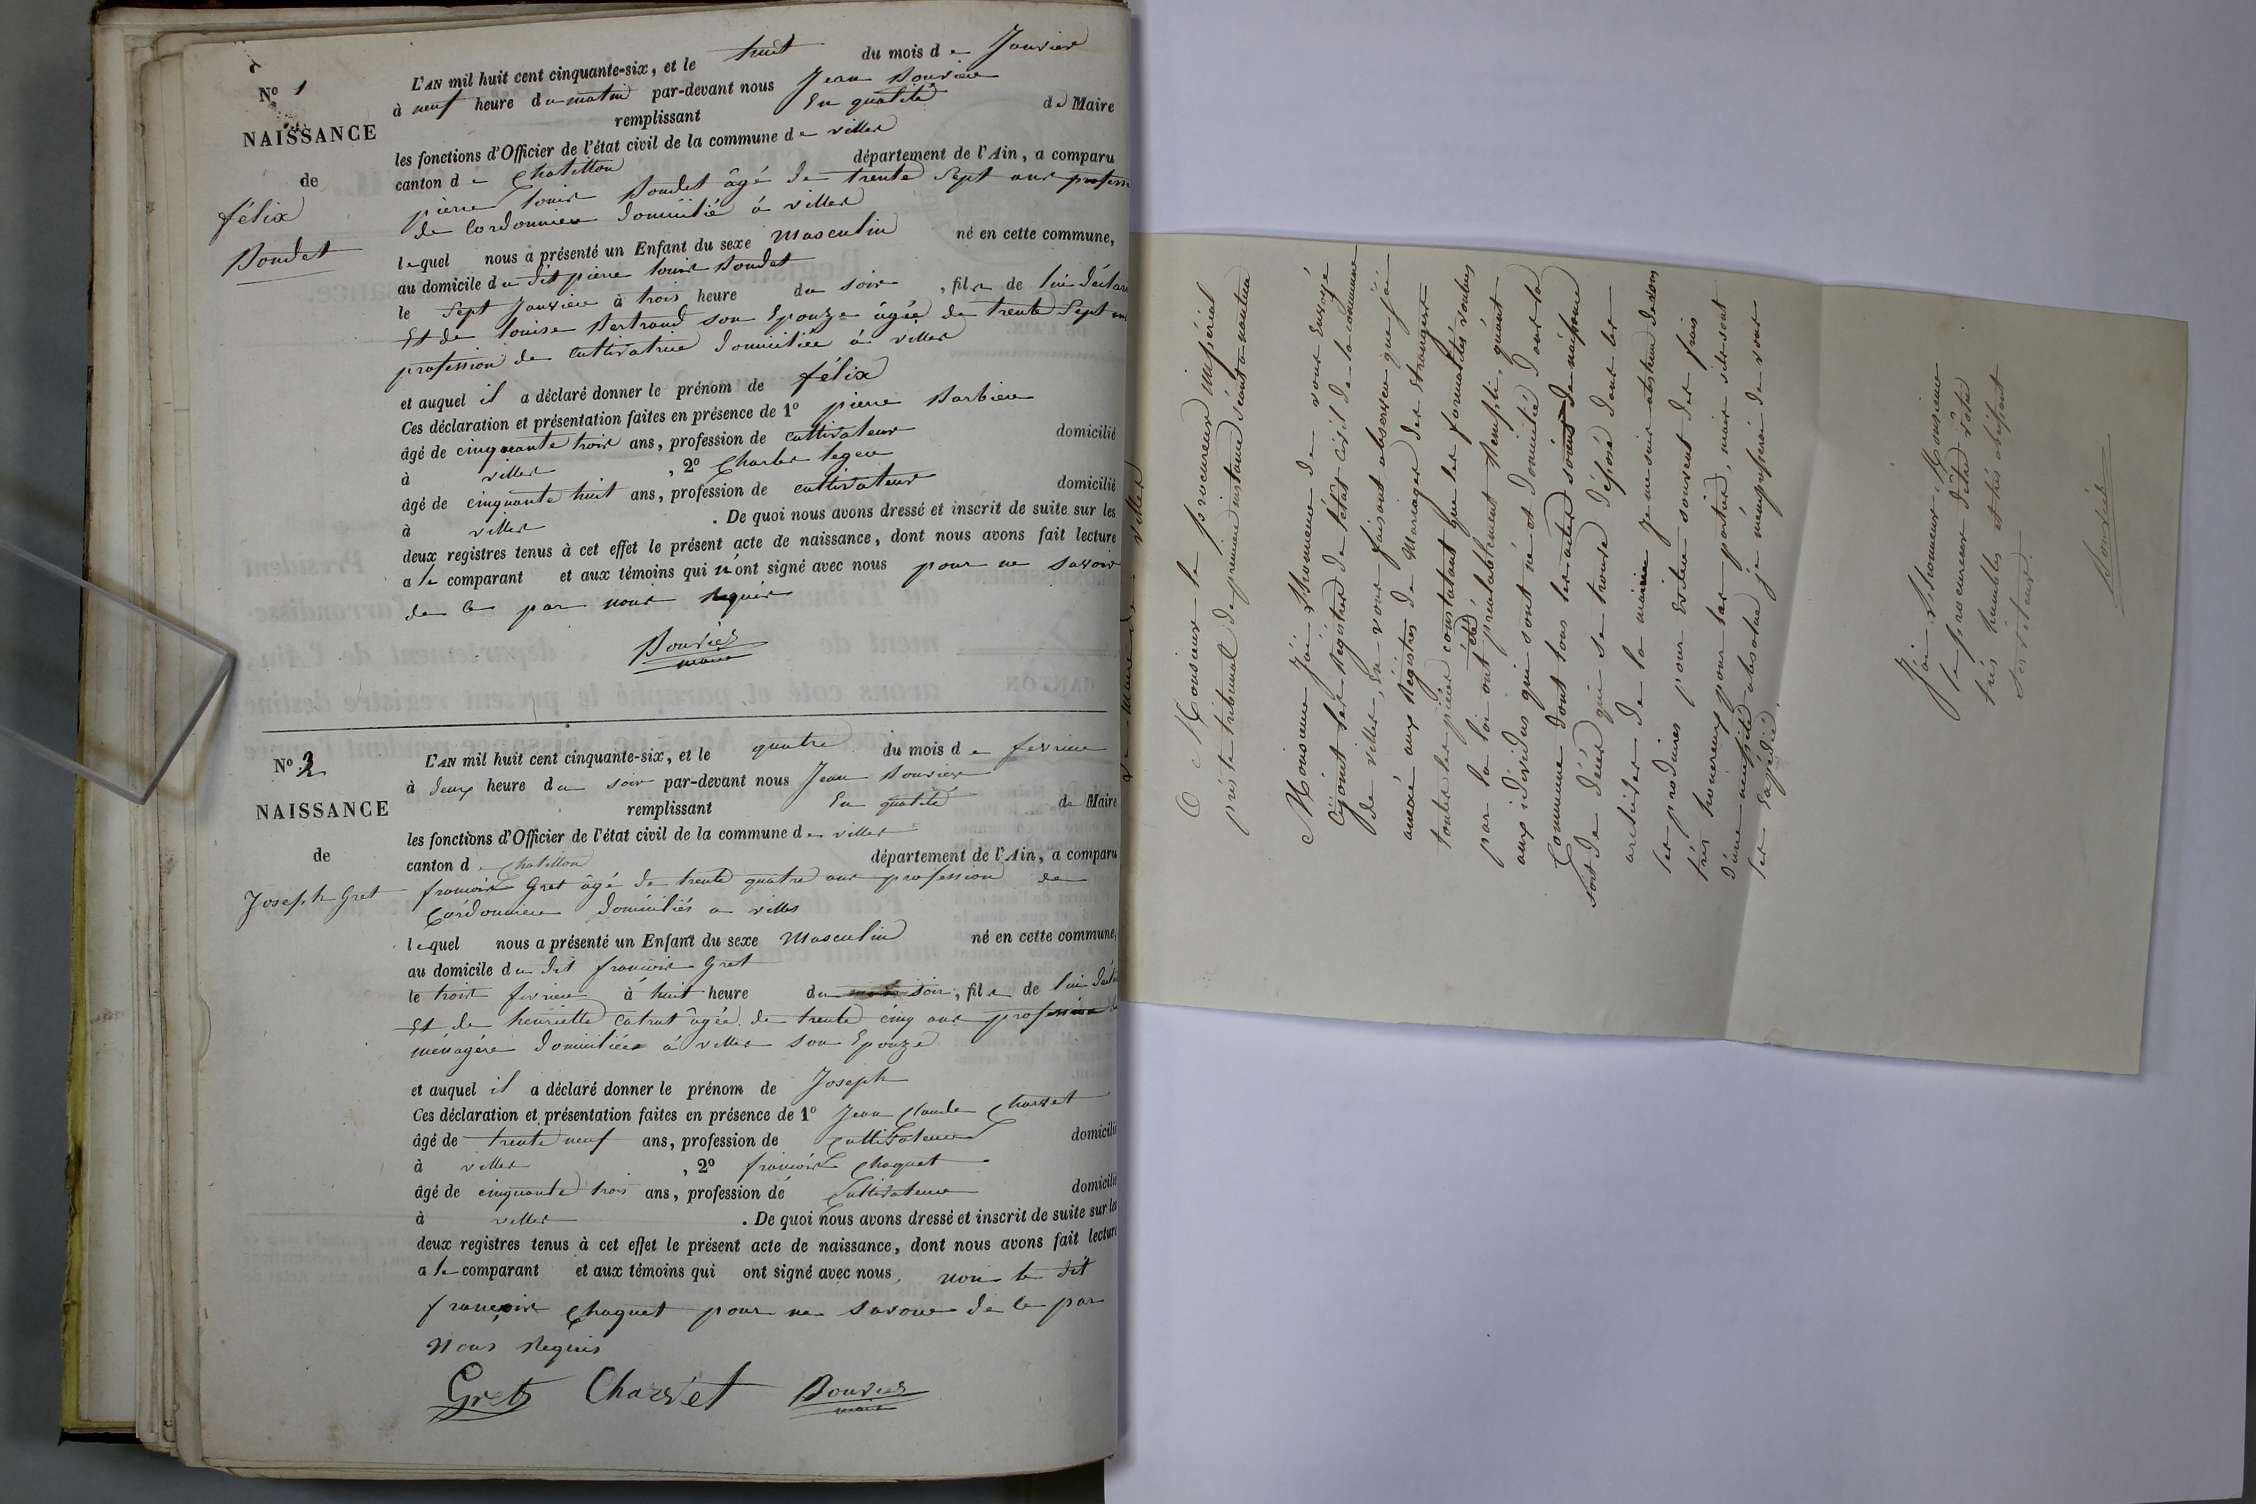 N° 1
NAISSANCE
de
félix
Boudet
L'AN mil huit cent cinquante-six, et le huit du mois de Janvier
à neuf heure du matin par-devant nous Jean Bouvier
remplissant En qualité de Maire
les fonctions d'Officier de l'état civil de la commune de villes
canton de Chatillon département de l'Ain, a comparu
pierre louis Boudet âgé de trente sept ans profession
de Cordonnier domicilié à villes
lequel nous a présenté un Enfant du sexe Masculin né en cette commune,
au domicile du dit pierre louis Boudet
le Sept Janvier à trois heure du soir, fils de lui déclarant
Et de louise Bertrand son Epouze agée de trente Sept ans
profession de cultivatrice domiciliée à villes
et auquel il a déclaré donner le prénom de félix
Ces déclaration et présentation faites en présence de 1° pierre Barbier
âgé de cinquante trois ans, profession de cultivateur domicilié
à villes, 2° Charles
âgé de cinquante huit ans, profession de cultivateur domicilié
à villes. De quoi nous avons dressé et inscrit de suite sur les
deux registres tenus à cet effet le présent acte de naissance, dont nous avons fait lecture
a le comparant et aux témoins qui n'ont signé avec nous pour ne savoir
de ce par nous requis
Bouvier
maire
N° 2
NAISSANCE
de
Joseph Gret
L'AN mil huit cent cinquante-six, et le quatre du mois de fevrier
à deux heure du soir par-devant nous Jean Bouvier
remplissant En qualité de Maire
les fonctions d'Officier de l'état civil de la commune de villes
canton de Chatillon département de l'Ain, a comparu
francois Gret âgé de trente quatre ans profession de
Cordonnier domiciliés a villes
lequel nous a présenté un Enfant du sexe Masculin né en cette commune,
au domicile du dit francois Gret
le trois fevrier à huit heure du soir, fils de lui déclarant
Et de henriette Catrut âgée de trente cinq ans profession de
ménagère domiciliée à villes son Epouze
et auquel il a déclaré donner le prénom de Joseph
Ces déclaration et présentation faites en présence de 1° Jean Claude Charvet
âgé de trente neuf ans, profession de Cultivateur domicilié
à villes, 2° francois Chaquet
âgé de cinquante trois ans, profession de Cultivateur domicilié
à villes. De quoi nous avons dressé et inscrit de suite sur les
deux registres tenus à cet effet le présent acte de naissance, dont nous avons fait lecture
a le comparant et aux témoins qui ont signé avec nous, non le dit
francois Chaquet pour ne savoir de ce par
Nous Requis
Gret Charvet Bouvier
maire
A Monsieur le procureur impérial
près le tribunal de première instance séant a nantua
Monsieur J'ai l'honneur de vous Envoyé
Cijoint les Régistres de létat civil de la commune
de villes, En vous faisant observer que j'ai
annéxé aux Régistres de Mariages des étrangers
toutes les pièces constatant que les formalités voulues
par la loi ont été préalablement Rempli, quant
aux individus qui sont né et domicilié dans la
Commune dont tous les actes soit de naissance
soit de décès qui se trouve déposé dans les
archives de la mairie je me suis abstenu de
les produires pour éviter souvent des frais
très honéreux pour les parties, mais s'ils sont
d'une nécessité absolue je m'empresserai de vous
les Expédié.
J'ai L'honneur Monsieur
le procureur d'être vôtre
très humble et très obéissant
serviteur.
Bouvier